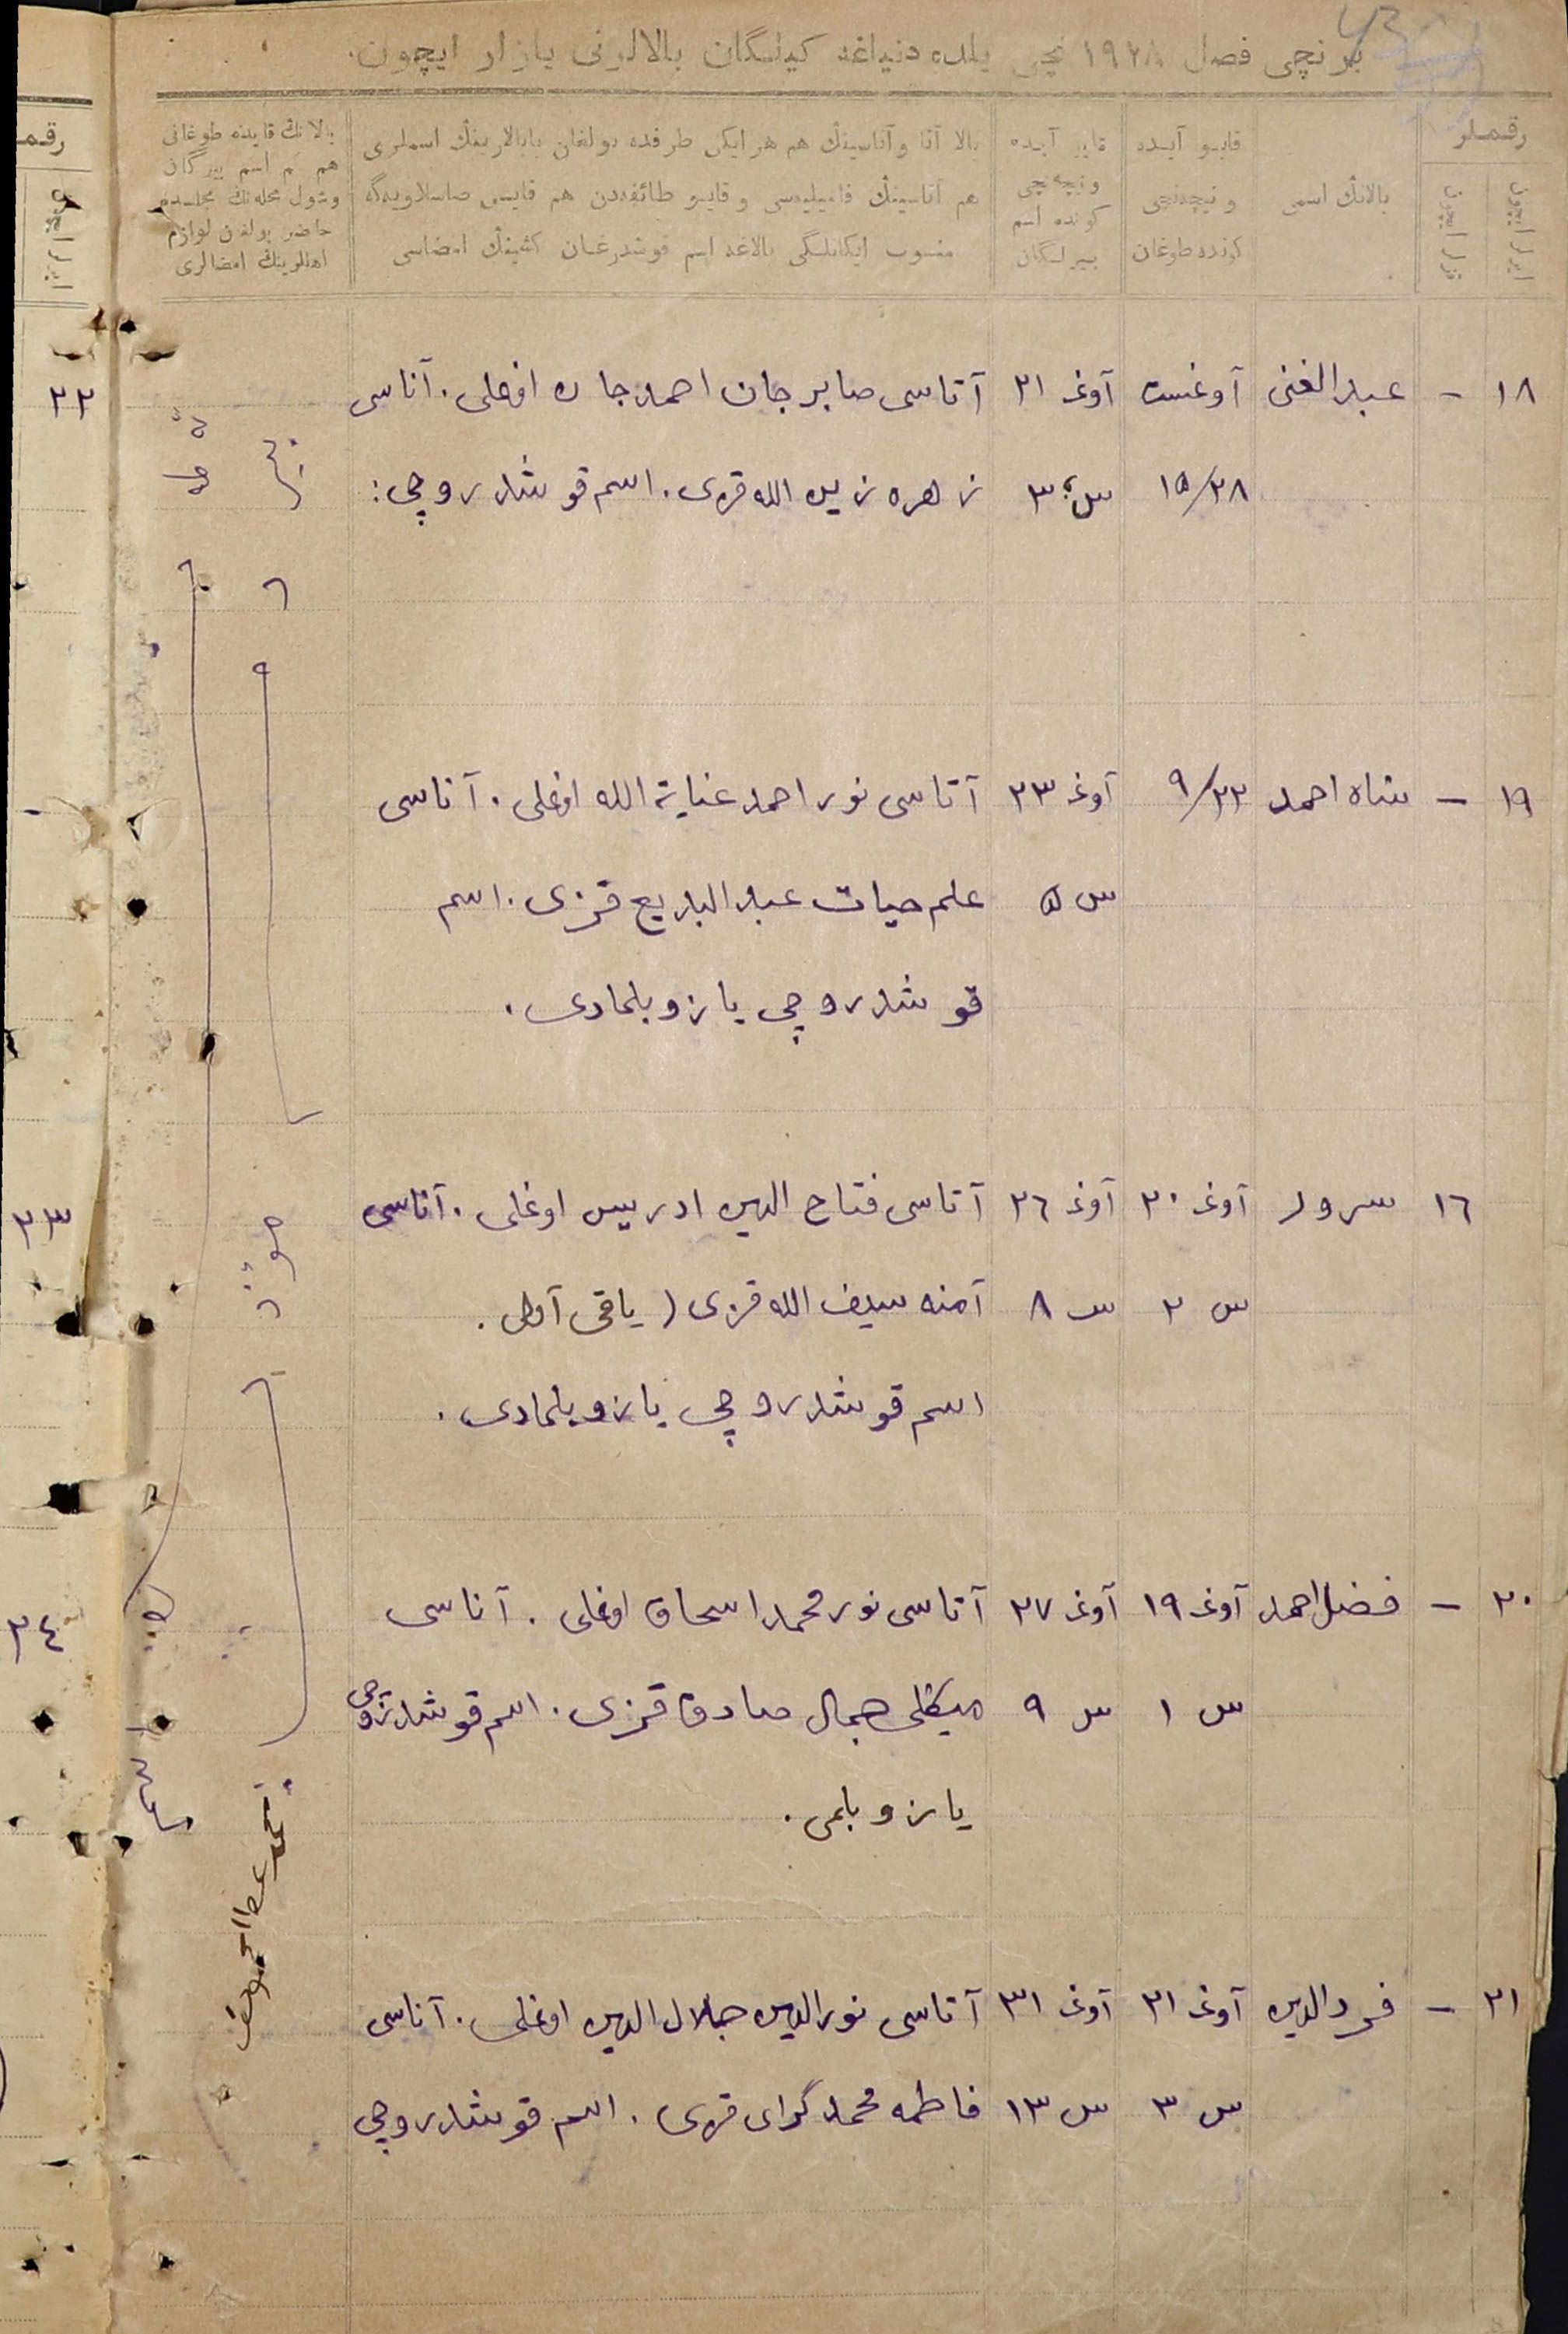 برنچی فصل ١٩٢٨ نچی یلده دنیاغه کیلگان بالالرنی یازار ایچون.
رقملر
بالانڭ اسمی
قایو آیده
و نیچه‌نچی
کونده طوغان
قایو آیده
و نیچه‌نچی
کونده اسم
بیرلگان
بالا آتا و آناسینڭ هم هر ایکی طرفده بولغان بابالارینڭ اسملری
هم آتاسینڭ فامیلیه‌سی و قایو طائفه‌دن هم قایسی صاسلاویه‌گه
منسوب ایکانلگی بالاغه اسم قوشدرغان کشینڭ امضاسی
بالانڭ قایده طوغانی
هم اسم بیرگان
وشول محله‌نڭ مجلسده
حاضر بولغان لوازم
اهللرینڭ امضالری
١٨ – عبدالغنی آوغست آوغ ٢١ آتاسی صابرجان احمدجان اوغلی. آناسی
١٥/٢٨ س ٣ زهره زین الله قزی. اسم قوشدروچی:
١٩ – شاه احمد ٩/٢٣ آوغ ٢٣ آتاسی نوراحمد عنایة الله اوغلی. آناسی
س ٥ علم حیات عبدالبدیع قزی. اسم
قوشدروچی یازو بلمادی.
١٦ سرور آوغ ٢٠ آوغ ٢٦ آتاسی فتاح الدین ادریس اوغلی. آناسی
س ٢ س ٨ آمنه سیف الله قزی (یاقی آول.
اسم قوشدروچی یازو بلمادی.
٢٠ – فضل احمد آوغ ١٩ آوغ ٢٧ آتاسی نورمحمد اسحاق اوغلی. آناسی
س ١ س ٩ میکلی جمال صادق قزی. اسم قوشدروچی
یازو بلمی.
٢١ – فردالدین آوغ ٢١ آوغ ٣١ آتاسی نورالدین جلال الدین اوغلی. آناسی
س ٣ س ١٣ فاطمه محمدگرای قزی. اسم قوشدروچی
رقم
٢٢
٣٣
٣٤